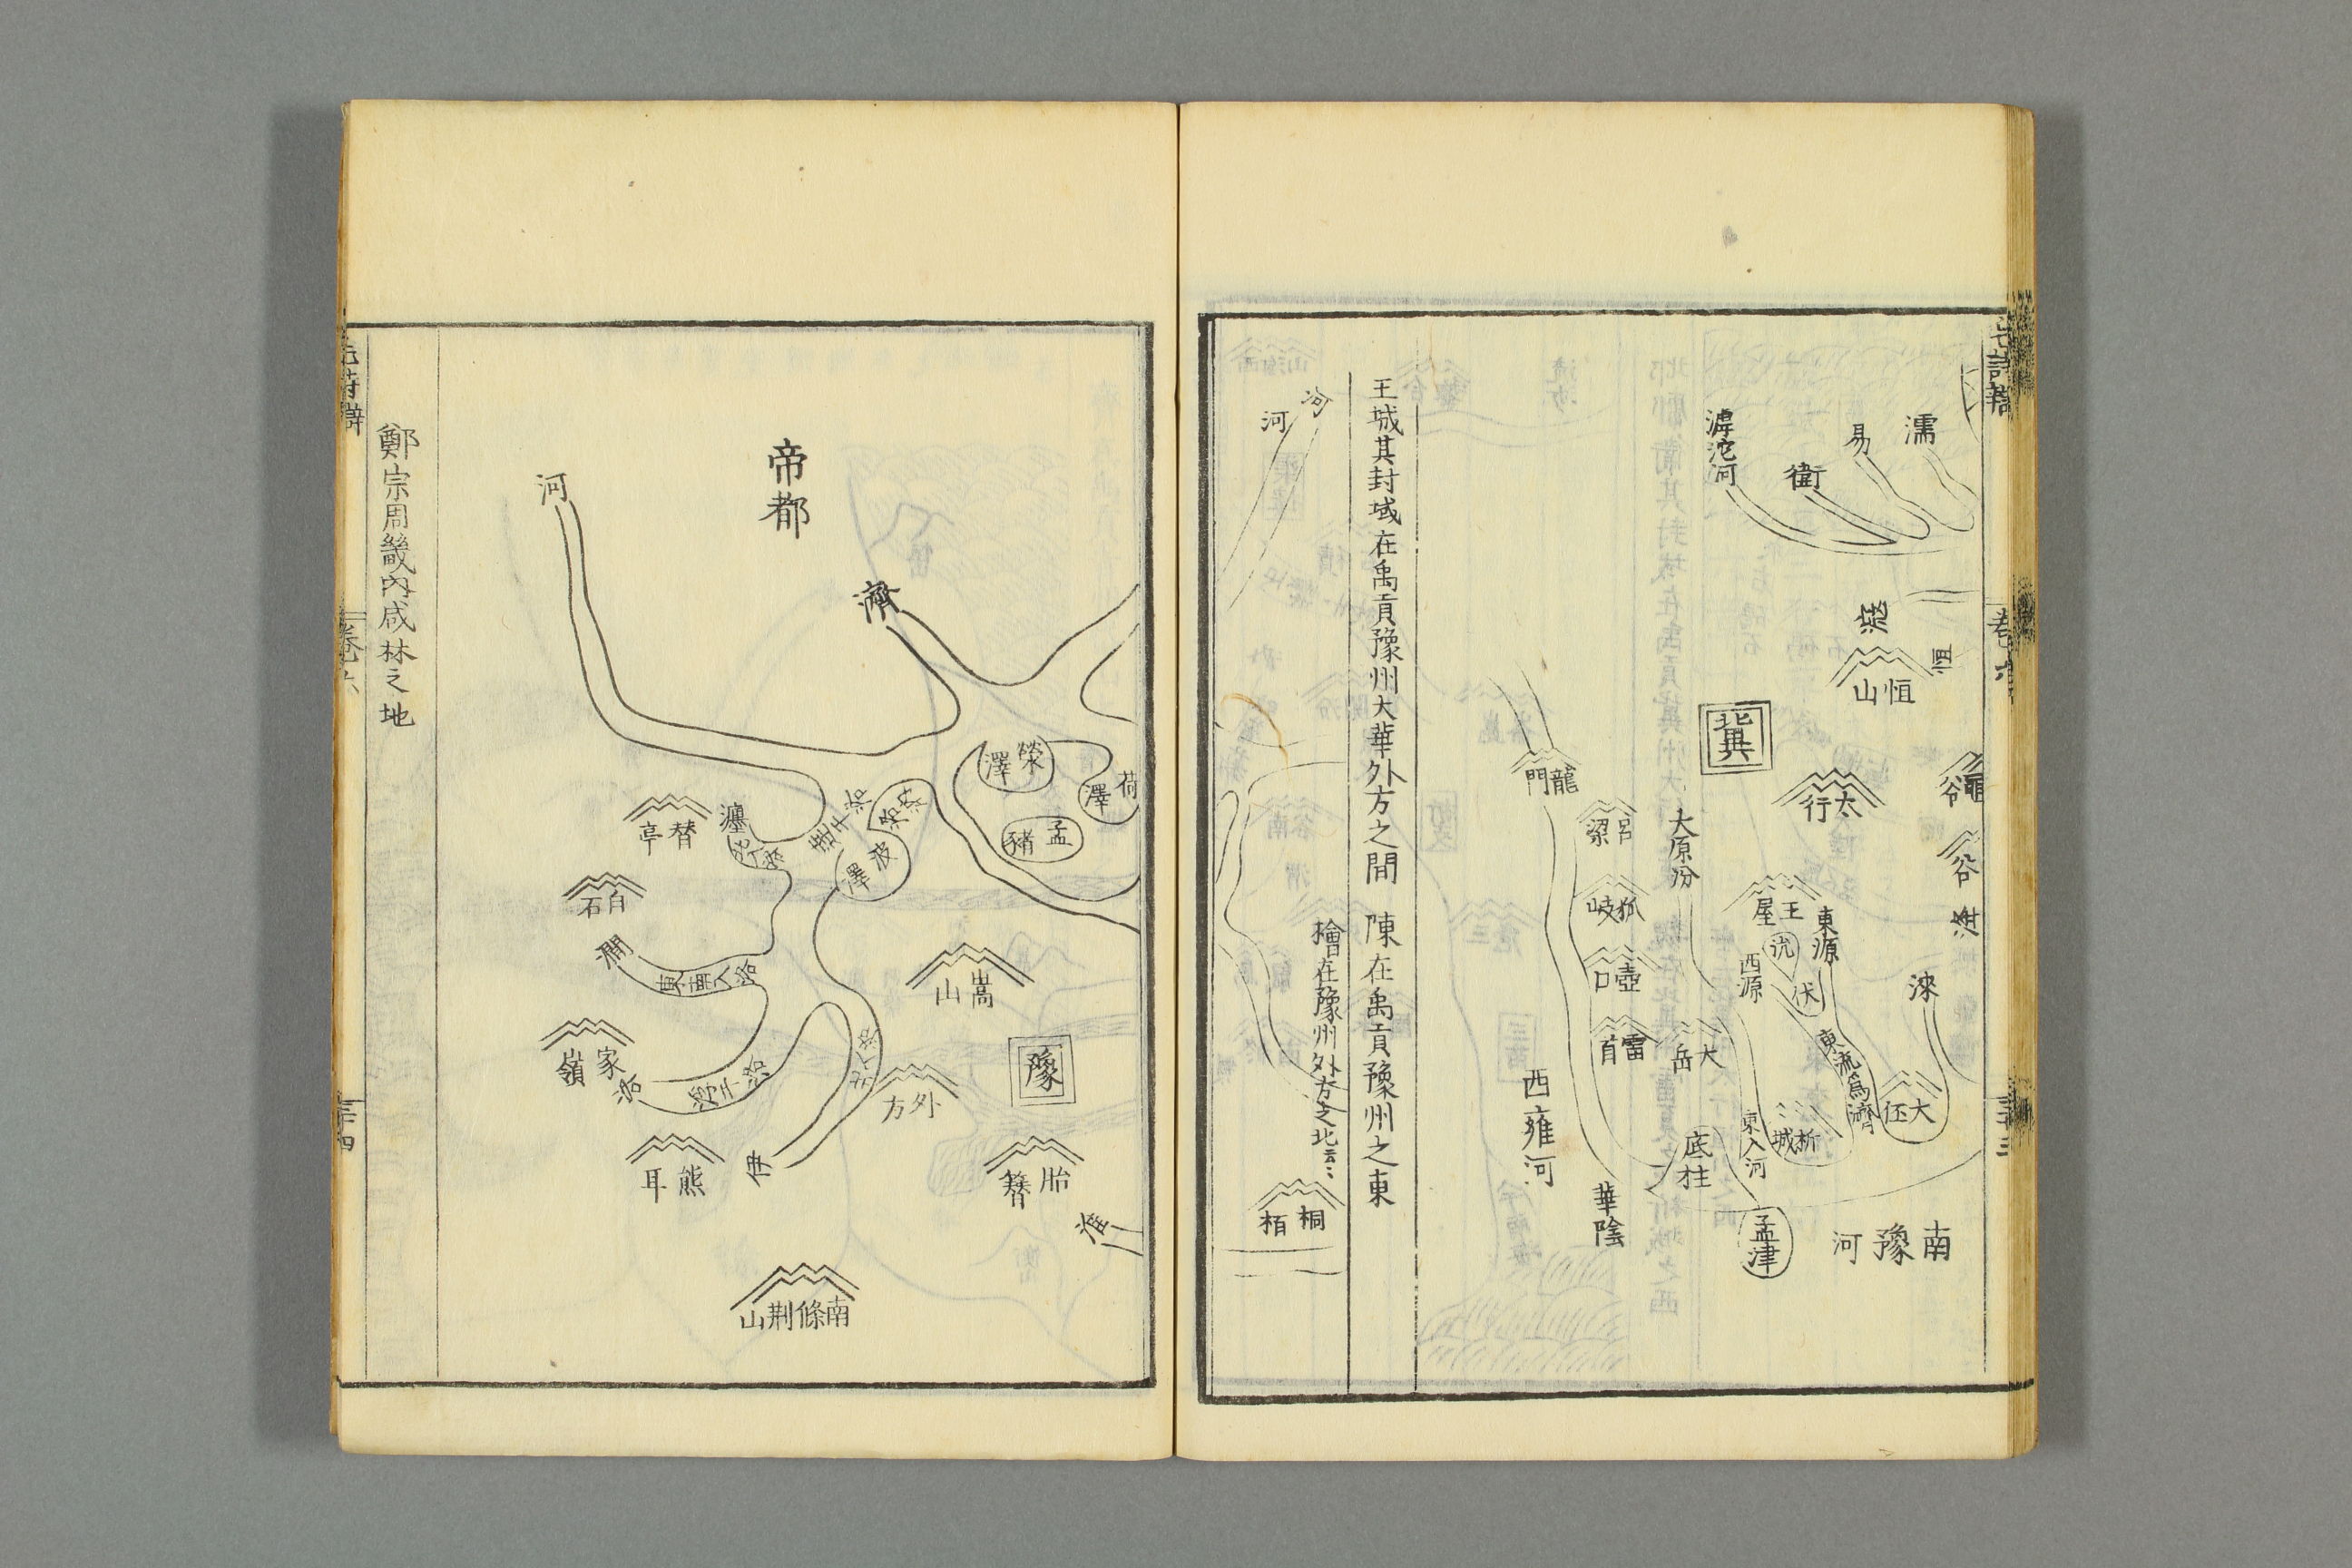 卷六
濡
易
衛
滹沱河
滱
恒
恒山
冀
太行
谷
涞
大伾
王屋
沇
東源
西源
伏
東流爲濟
析城
東入河
孟津
南豫河
底柱
大岳
大原汾
龍門
呂梁
狐岐
壺口
雷首
西雍河
華陰
王城其封域在禹貢豫州大華外方之間　陳在禹貢豫州之東
檜在豫州外方之北云云
河
河
桐栢
荷澤
滎澤
孟豬
波澤
帝都
濟
河
瀍
替亭
白石
澗
家嶺
洛
熊耳
伊
嵩山
外方
豫
胎簪
淮
南條荆山
鄭宗周畿內咸林之地
卷六
三十四